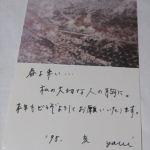 春よ来い…
私の大切な人の胸に。
本年もどうぞよろしくお願いいたします。
'95. 泉 yumi